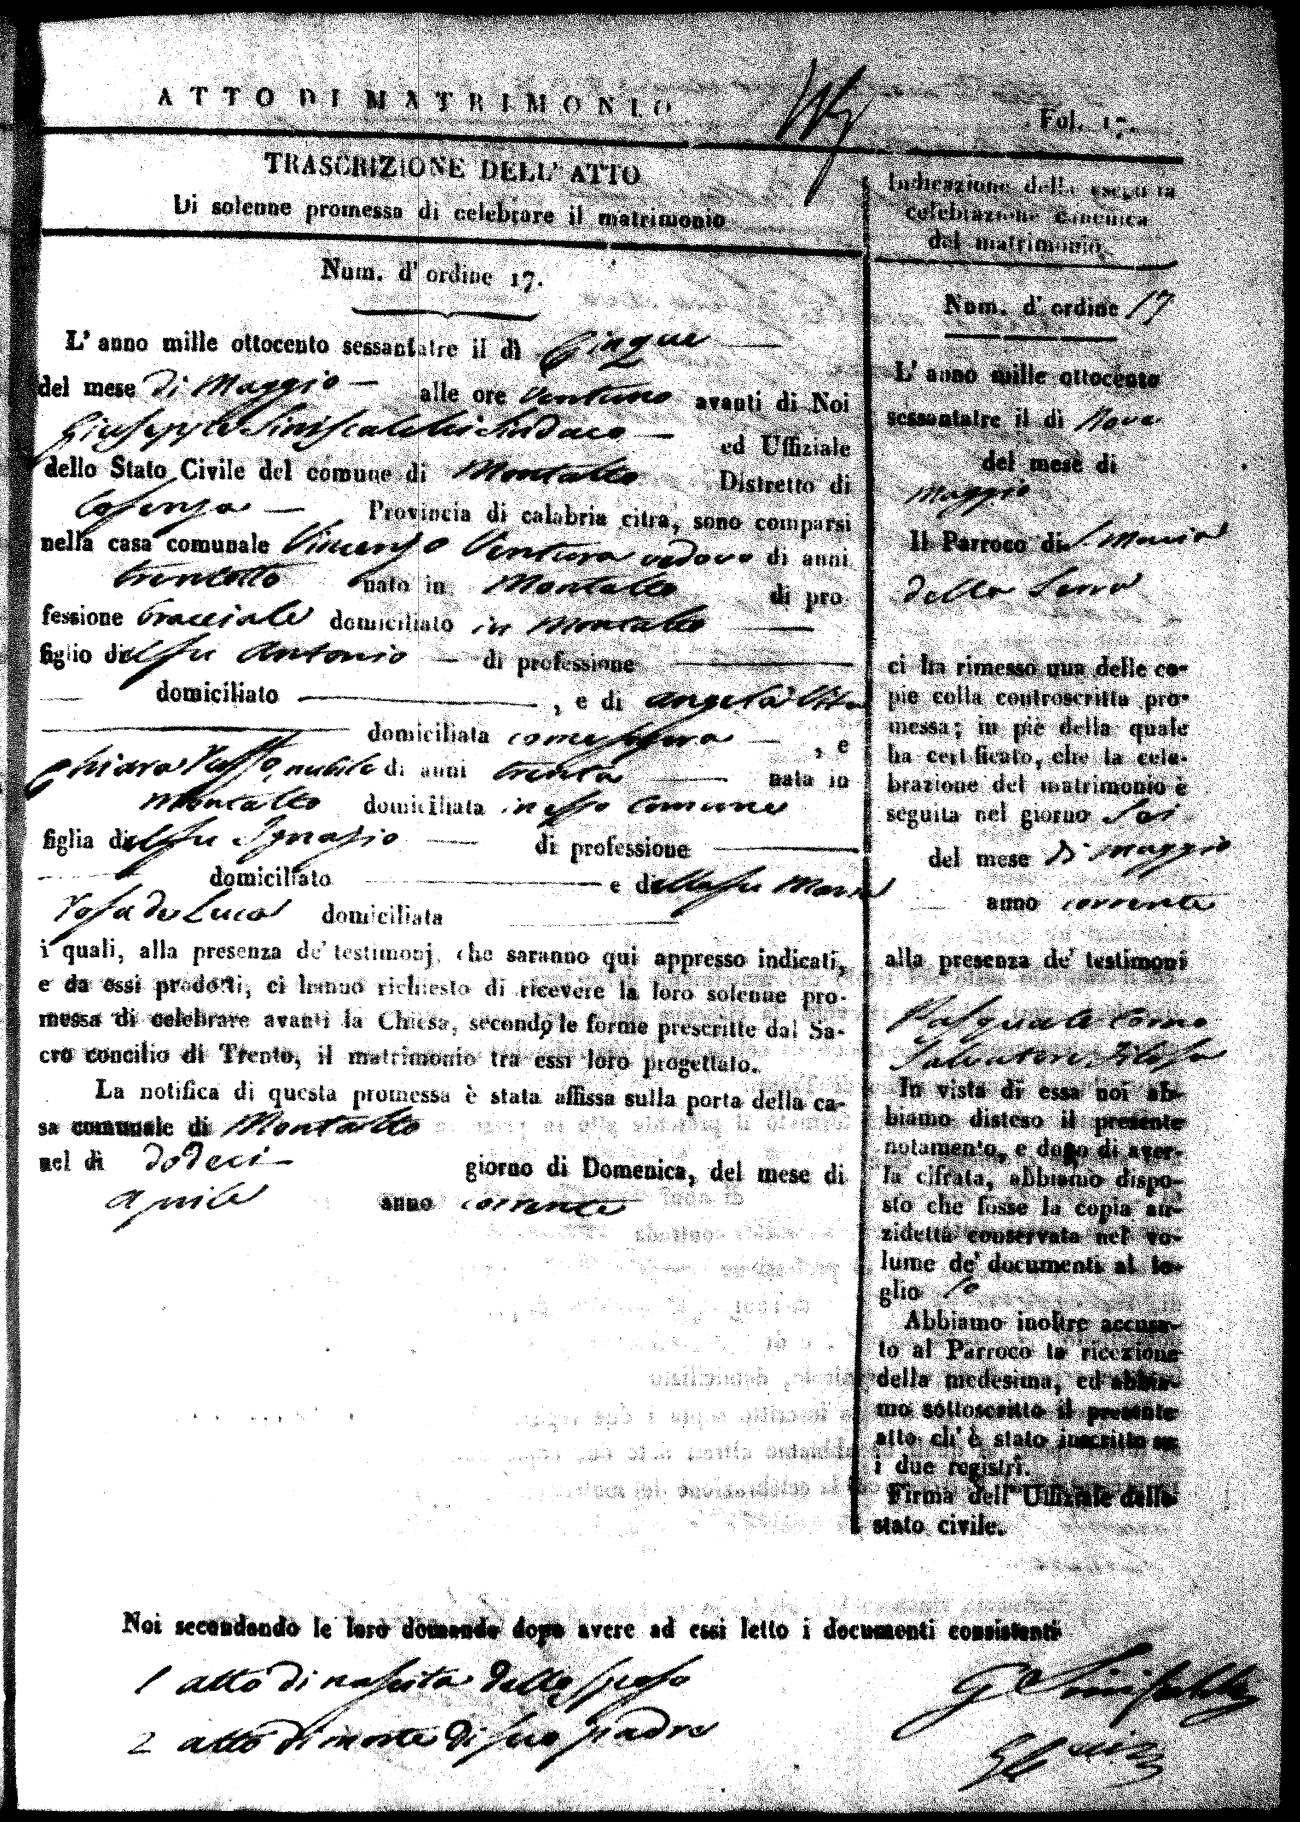 ATTO DI MATRIMONIO
Fol. 17.
TRASCRIZIONE DELL' ATTO
Di solenne promessa di celebrare il matrimonio
Num. d' ordine 17.
L' anno mille ottocento sessantatre il dì Cinque
del mese di Maggio alle ore ventuno avanti di Noi
Giuseppe Siniscalchi Sindaco ed Uffiziale
dello Stato Civile del comune di Montalto Distretto di
Cosenza Provincia di calabria citra, sono comparsi
nella casa comunale Vincenzo Ventura vedovo di anni
trentotto nato in Montalto di pro
fessione bracciale domiciliato in Montalto
figlio del fu Antonio di professione
domiciliato , e di Angela
domiciliata come sopra , e
Chiara Russo, nubile di anni trenta nata in
Montalto domiciliata in esso comune
figlia del fu Ignazio di professione
domiciliato e della fu Maria
Rosa de Luca domiciliata
i quali, alla presenza de' testimonj, che saranno qui appresso indicati,
e da essi prodotti, ci hanno richiesto di ricevere la loro solenne pro-
messa di celebrare avanti la Chiesa, secondo le forme prescritte dal Sa-
cro concilio di Trento, il matrimonio tra essi loro progettato.
La notifica di questa promessa è stata affissa sulla porta della ca-
sa comunale di Montalto
nel dì dodeci giorno di Domenica, del mese di
aprile anno corrente
Indicazione della eseguita
celebrazione canonica
del matrimonio.
Num. d' ordine 17
L' anno mille ottocento
sessantatre il dì Nove
del mese di
Maggio
Il Parroco di S. Maria
della Serra
ci ha rimesso una delle co-
pie colla controscritta pro-
messa; in piè della quale
ha certificato, che la cele-
brazione del matrimonio è
seguita nel giorno Sei
del mese di Maggio
anno corrente
alla presenza de' testimoni
Pasquale
Salvatore Filosa
In vista di essa noi ab-
biamo disteso il presente
notamento, e dopo di aver-
la cifrata, abbiamo dispo-
sto che fosse la copia an-
zidetta conservata nel vo-
lume de' documenti al fo-
glio 10
Abbiamo inoltre accusa-
to al Parroco la ricezione
della medesima, ed abbia-
mo sottoscritto il presente
atto ch' è stato inscritto su
i due registri.
Firma dell' Uffiziale dello
stato civile.
Noi secondando le loro domande dopo avere ad essi letto i documenti consistenti
1 atto di nascita dello sposo
2 atto di morte di suo padre
G Siniscalchi